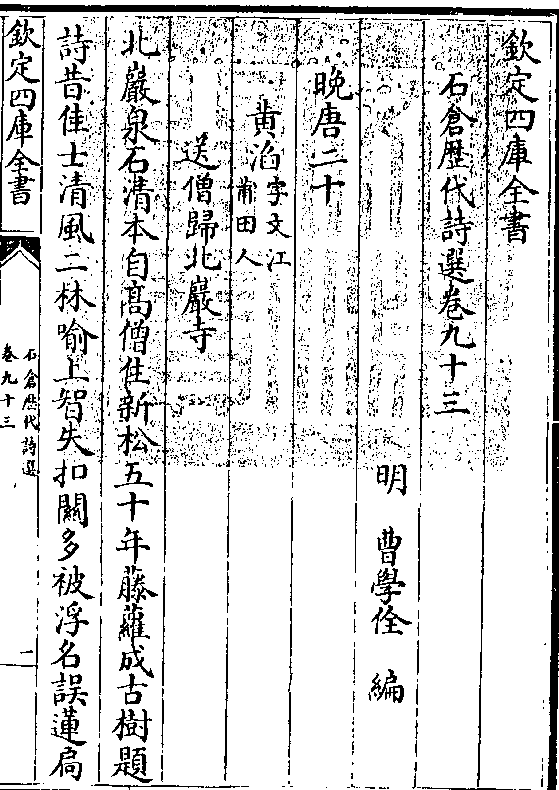 欽定四庫全書
石倉歴代詩選卷九十三
明 曹學佺 編
晚唐二十
黄滔字文江
莆田人
送僧歸北巖寺
北巖泉石清本自髙僧住新松五十年藤蘿成古樹題
詩昔佳士清風二林喻上智失扣關多被浮名誤蓮扃
欽定四庫全書
石倉歴代詩選
卷九十三
二